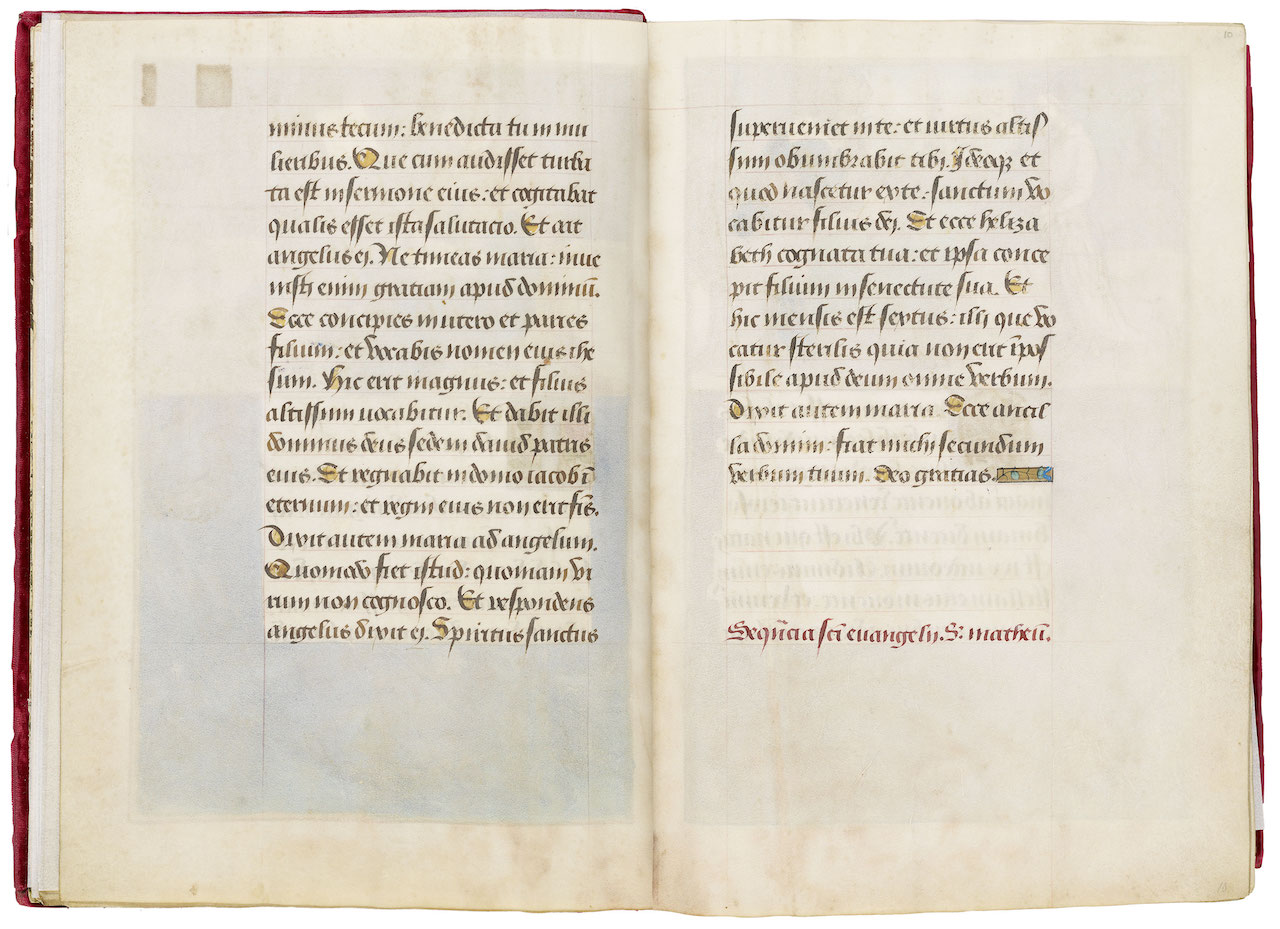 minus tecum: benedicta tu in mu
lieribus. Que cum audisset turba
ta est in sermone eius: et cogitabat
qualis esset ista salutacio. Et ait
angelus ei. Ne timeas maria: inve
nisti enim gratiam apud dominū.
Ecce concipies in utero et paries
filium: et vocabis nomen eius ihe
sum. Hic erit magnus: et filius
altissimi vocabitur. Et dabit illi
dominus deus sedem david patris
eius. Et regnabit in domo iacob ī
eternum: et regni eius non erit fīs.
Dixit autem maria ad angelum.
Quomodo fiet istud: quoniam vi
rum non cognosco. Et respondens
angelus dixit ei. Spiritus sanctus
10
superveniet in te: et virtus altis
simi obumbrabit tibi. Ideoqz et
quod nascetur exte: sanctum vo
cabitur filius dei. Et ecce heliza
beth cognata tua: et ipsa conce
pit filium in senectute sua. Et
hic mensis est sextus: illi que vo
catur sterilis quia non erit īpos
sibile apud deum omne verbum.
Dixit autem maria. Ecce ancil
la domini: fiat michi secundum
verbum tuum. Deo gratias.
Sequēcia sc̄i euangelij. S. matheū.